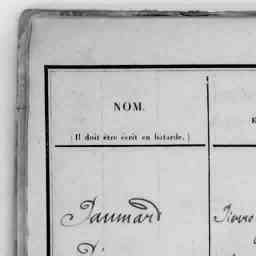 NOM.
( Il doit être écrit en batarde. )
Jaumard
Pierre